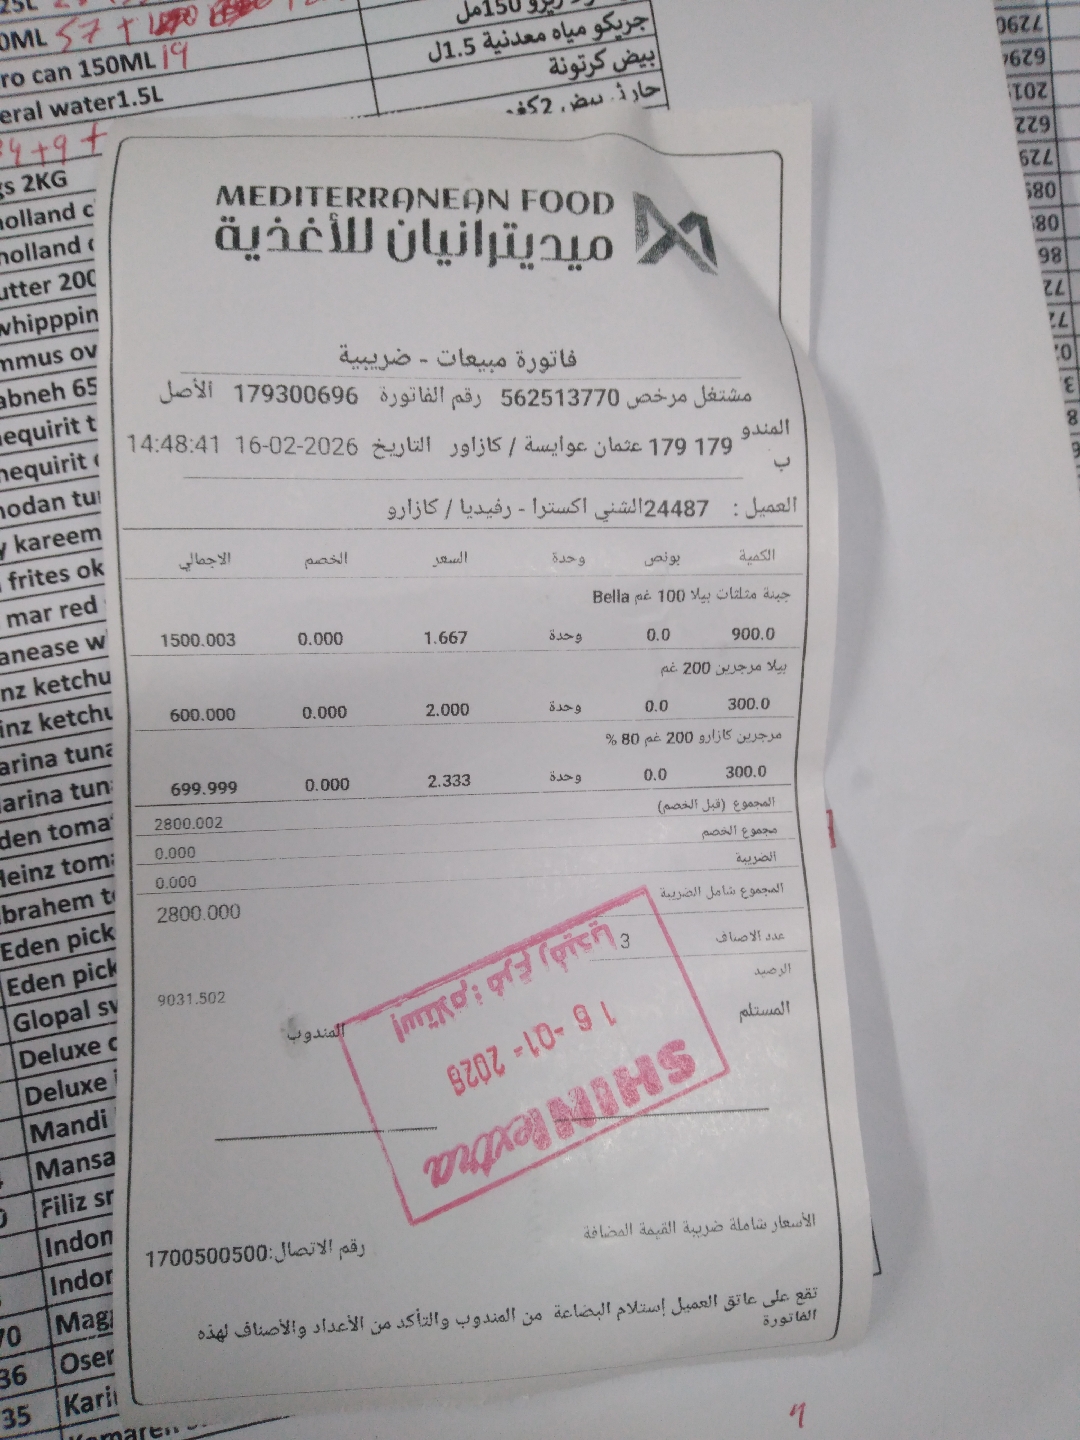 MEDITERRANEAN FOOD
ميديترانيان للأغذية
فاتورة مبيعات - ضريبية
مشتغل مرخص 562513770 رقم الفاتورة 179300696 الأصل
المندوب 179 179 عثمان عوايسة / كازاور التاريخ 16-02-2026 14:48:41
العميل : 24487الشني اكسترا - رفيديا / كازارو
الكمية بونص وحدة السعر الخصم الاجمالي
جبنة مثلثات بيلا 100 غم Bella
900.0 0.0 وحدة 1.667 0.000 1500.003
بيلا مرجرين 200 غم
300.0 0.0 وحدة 2.000 0.000 600.000
مرجرين كازارو 200 غم 80 %
300.0 0.0 وحدة 2.333 0.000 699.999
المجموع (قبل الخصم) 2800.002
مجموع الخصم 0.000
الضريبة 0.000
المجموع شامل الضريبة 2800.000
عدد الاصناف 3
الرصيد 9031.502
المستلم المندوب
إستلام : فرع رفيديا
16-01-2026
SHINI extra
الأسعار شاملة ضريبة القيمة المضافة
رقم الاتصال:1700500500
تقع على عاتق العميل إستلام البضاعة من المندوب والتأكد من الأعداد والأصناف لهذه
الفاتورة
ro can 150ML 19
جريكو مياه معدنية 1.5ل
eral water1.5L
بيض كرتونة
gs 2KG
holland c
holland
utter 200
whipppin
mmus ov
abneh 65
nequirit t
nequirit
nodan tu
y kareem
frites ok
mar red
anease w
nz ketchu
inz ketchu
arina tuna
arina tun
den toma
Heinz tom
brahem t
Eden pick
Eden pick
Glopal sv
Deluxe
Deluxe
Mandi
Mansa
Filiz sr
Indon
Indor
70 Mag
36 Oser
35 Kari